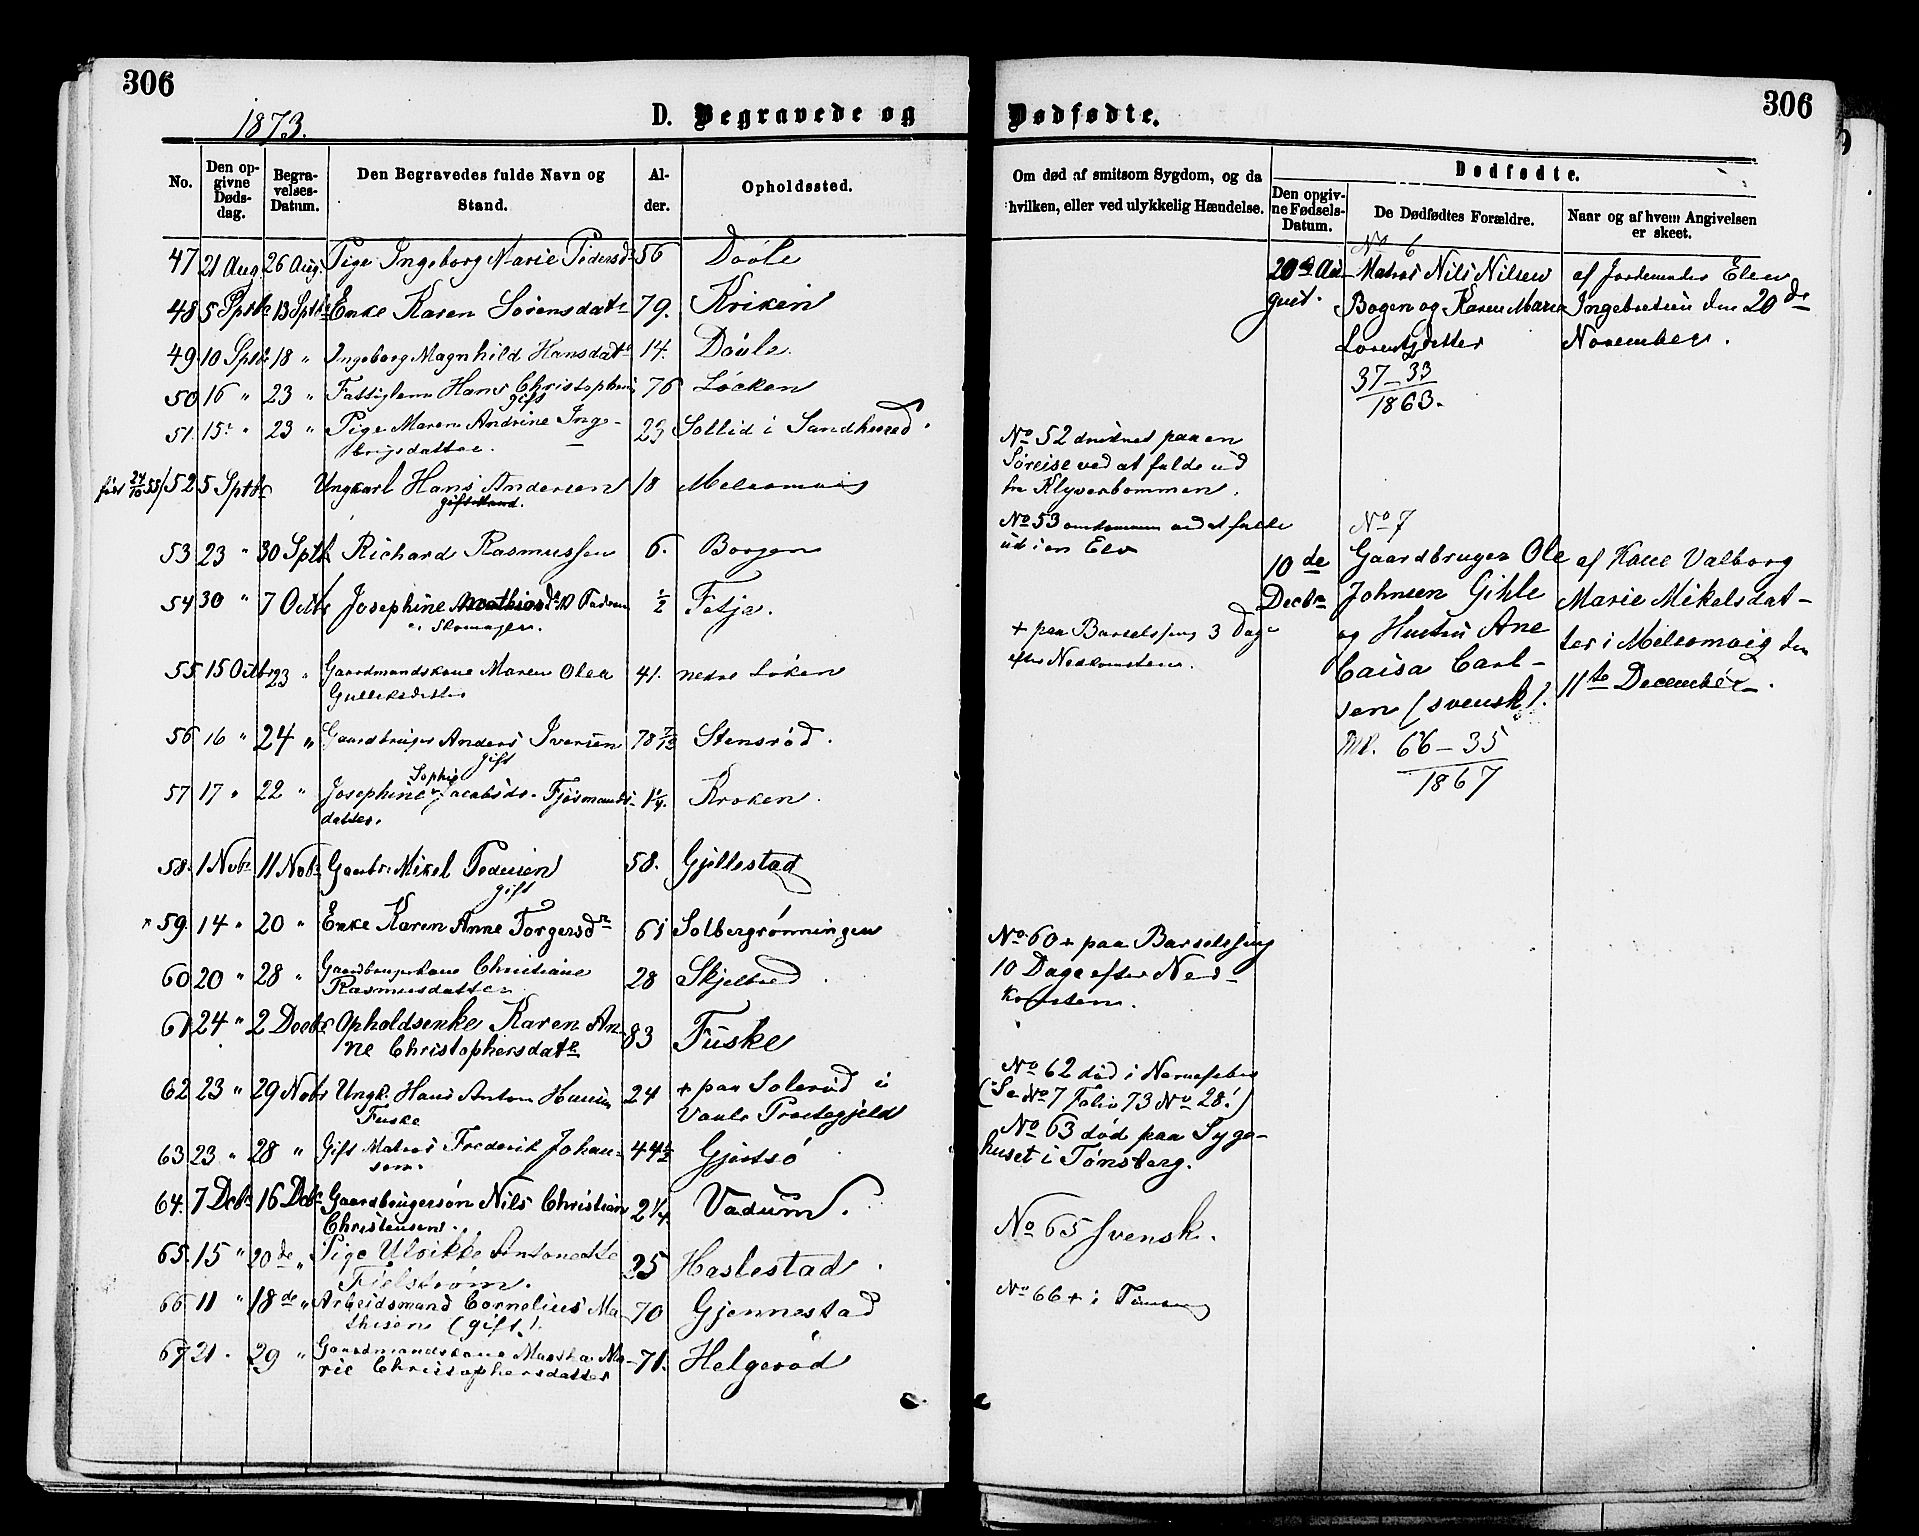 306
1873.
D. Begravede og
No.
Den opgivne Dødsdag.
Begravelses-Datum.
Den Begravedes fulde Navn og Stand.
Alder.
Opholdssted.
47 21 Aug 26 Aug. Pige Ingeborg Marie Pedersd 56
48 5 Sptbr 13 Sptbr Enke Karen Sørensdatr 79. Kriken
49 10 Sptbr 18 " Ingeborg Magnhild Hansdatr 14.
50 16 " 23 " Fattiglem Hans Christophersen 76 Løcken
gift
51. 15 " 23 " Pige Maren Andrine Inge- 23 Sollid i Sandherred.
brigsdatter.
født 24/10 55/52 5 Sptbr Ungkarl Hans Andersen 18 Melsomvig
53 23 " 30 Sptb Richard Rasmussen 6. Borgen
54 30 " 7 Octbr Josephine 1/2
55 15 Octbr 23 " Gaardmandskone Maren Olea 41. nedre Løken
Gulleksdatter
56 16 " 24 " Gaardbruger Anders Iversen 78 Stensrød.
gift
Sophie
57 17 " 22 " Josephine Jacobsdr. Kroken.
datter.
58. 1 Nobr 11 Nobr Gaardbr: Mikel Pedersen 58. Gjellestad
gift
59. 14 " 20 " Enke Karen Anne Torgersdr 61 Solbergrønningen
60 20 " 28 " Gaardbrugerkone Christiane 28
Rasmusdatter
61 24 " 2 Decbr Opholdsenke Karen An- 83 Fuske
ne Christophersdatr
62 23 " 29 Nobr Ungk. Hans Anton Hansen 24 + paa Solerød i
Fuske Vaale Prestegjeld
63 23 " 28 " Gift Matros Frederik Johan- 44 1/2 Gjertsø
sen.
64. 7 Decbr 16 Decbr Gaardbrugersøn Nils Christian 2 1/4 Vadum.
Christensen.
65. 15 " 20de " Pige Ulrikke Antonette 25 Haslestad
Fjelstrøm.
66 11 " 18de " Arbeidsmand Cornelius Ma- 70 Gjennestad
thisen (gift).
67 21. 29 " Gaardmandskone Martha Ma- 71. Helgerød
rie Christophersdatter
306
Dødfødte.
Om død af smitsom Sygdom, og da hvilken, eller ved ulykkelig Hændelse.
Dødfødte.
Den opgivne Fødsels-Datum.
De Dødfødtes Forældre.
Naar og af hvem Angivelsen er skeet.
No 52 druknet paa en
Søreise ved at falde ud
fra Klyverbommen.
No 53 omkommen ved at falde
ud i en Elv
+ paa Barselseng 3 Dage
efter Nedkomsten.
No. 60 + paa Barselseng
10 Dage efter Ned-
komsten.
No 62 død i Nervefeber
(Se No 7 Folio 73 No 28!)
No 63 død paa Syge-
huset i Tønsberg.
No 65 svensk.
No 66 + i
No 6
20de Au- Matros Nils Nilsen af Jordemoder Elen
gust. Bogen og Karen Marie Ingebretsen den 20de
Lorentzdatter November.
37 – 33
1863.
No 7
10de Gaardbruger Ole af Kone Valborg
Decbr Johnsen Gihle Marie Mikelsdat-
og Hustru Ane ter i Melsomvig den
Caisa Carl- 11te December.
sen (svensk).
66 – 35
1867